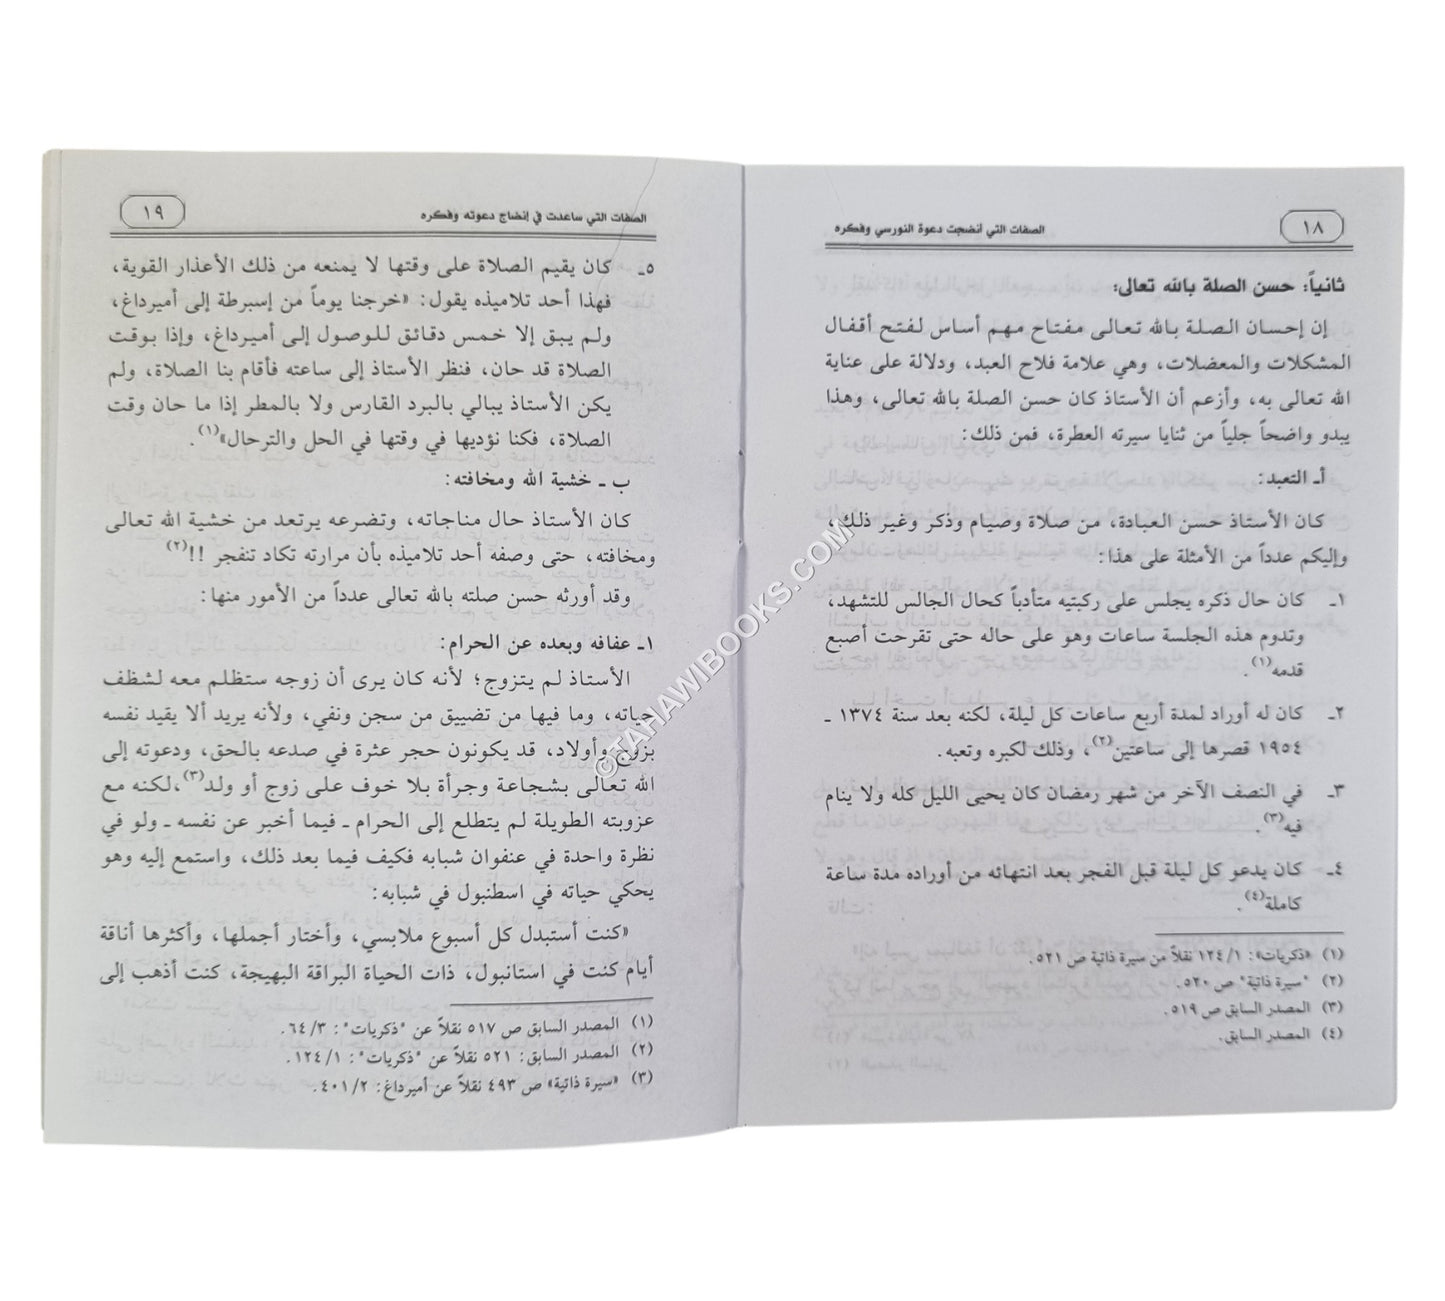 ١٨
الصفات التي أنضجت دعوة النورسي وفكره
ثانياً: حسن الصلة بالله تعالى:
إن إحسان الصلة بالله تعالى مفتاح مهم أساس لفتح أقفال
المشكلات والمعضلات، وهي علامة فلاح العبد، ودلالة على عناية
الله تعالى به، وأزعم أن الأستاذ كان حسن الصلة بالله تعالى، وهذا
يبدو واضحاً جلياً من ثنايا سيرته العطرة، فمن ذلك:
أ ـ التعبد:
كان الأستاذ حسن العبادة، من صلاة وصيام وذكر وغير ذلك،
وإليكم عدداً من الأمثلة على هذا:
١ـ كان حال ذكره يجلس على ركبتيه متأدباً كحال الجالس للتشهد،
وتدوم هذه الجلسة ساعات وهو على حاله حتى تقرحت أصبع
قدمه(١).
٢ـ كان له أوراد لمدة أربع ساعات كل ليلة، لكنه بعد سنة ١٣٧٤ ـ
١٩٥٤ قصرها إلى ساعتين(٢)، وذلك لكبره وتعبه.
٣ـ في النصف الآخر من شهر رمضان كان يحيى الليل كله ولا ينام
فيه(٣).
٤ـ كان يدعو كل ليلة قبل الفجر بعد انتهائه من أوراده مدة ساعة
كاملة(٤).
(١) «ذكريات»: ١/١٢٤ نقلاً من سيرة ذاتية ص ٥٢١.
(٢) "سيرة ذاتية" ص ٥٢٠.
(٣) المصدر السابق ص ٥١٩.
(٤) المصدر السابق.
الصفات التي ساعدت في إنضاج دعوته وفكره
١٩
٥ـ كان يقيم الصلاة على وقتها لا يمنعه من ذلك الأعذار القوية،
فهذا أحد تلاميذه يقول: «خرجنا يوماً من إسبرطة إلى أميرداغ،
ولم يبق إلا خمس دقائق للوصول إلى أميرداغ، وإذا بوقت
الصلاة قد حان، فنظر الأستاذ إلى ساعته فأقام بنا الصلاة، ولم
يكن الأستاذ يبالي بالبرد القارس ولا بالمطر إذا ما حان وقت
الصلاة، فكنا نؤديها في وقتها في الحل والترحال»(١).
ب ـ خشية الله ومخافته:
كان الأستاذ حال مناجاته، وتضرعه يرتعد من خشية الله تعالى
ومخافته، حتى وصفه أحد تلاميذه بأن مرارته تكاد تنفجر !!(٢)
وقد أورثه حسن صلته بالله تعالى عدداً من الأمور منها:
١ـ عفافه وبعده عن الحرام:
الأستاذ لم يتزوج؛ لأنه كان يرى أن زوجه ستظلم معه لشظف
حياته، وما فيها من تضييق من سجن ونفي، ولأنه يريد ألا يقيد نفسه
بزوج وأولاد، قد يكونون حجر عثرة في صدعه بالحق، ودعوته إلى
الله تعالى بشجاعة وجرأة بلا خوف على زوج أو ولد(٣)،لكنه مع
عزوبته الطويلة لم يتطلع إلى الحرام ـ فيما أخبر عن نفسه ـ ولو في
نظرة واحدة في عنفوان شبابه فكيف فيما بعد ذلك، واستمع إليه وهو
يحكي حياته في اسطنبول في شبابه:
«كنت أستبدل كل أسبوع ملابسي، وأختار أجملها، وأكثرها أناقة
أيام كنت في استانبول، ذات الحياة البراقة البهيجة، كنت أذهب إلى
(١) المصدر السابق ص ٥١٧ نقلاً عن "ذكريات": ٣/ ٦٤.
(٢) المصدر السابق: ٥٢١ نقلاً عن "ذكريات": ١/ ١٢٤.
(٣) «سيرة ذاتية» ص ٤٩٣ نقلاً عن أميرداغ: ٢/ ٤٠١.
©TAHAWIBOOKS.COM